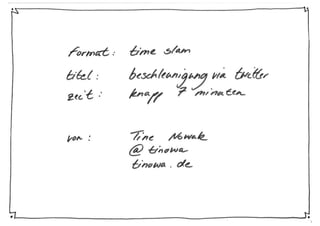 format: time slam
titel: beschleunigung via twitter
zeit: knapp 7 minuten
von: Tine Nowak
@tinowa
tinowa.de